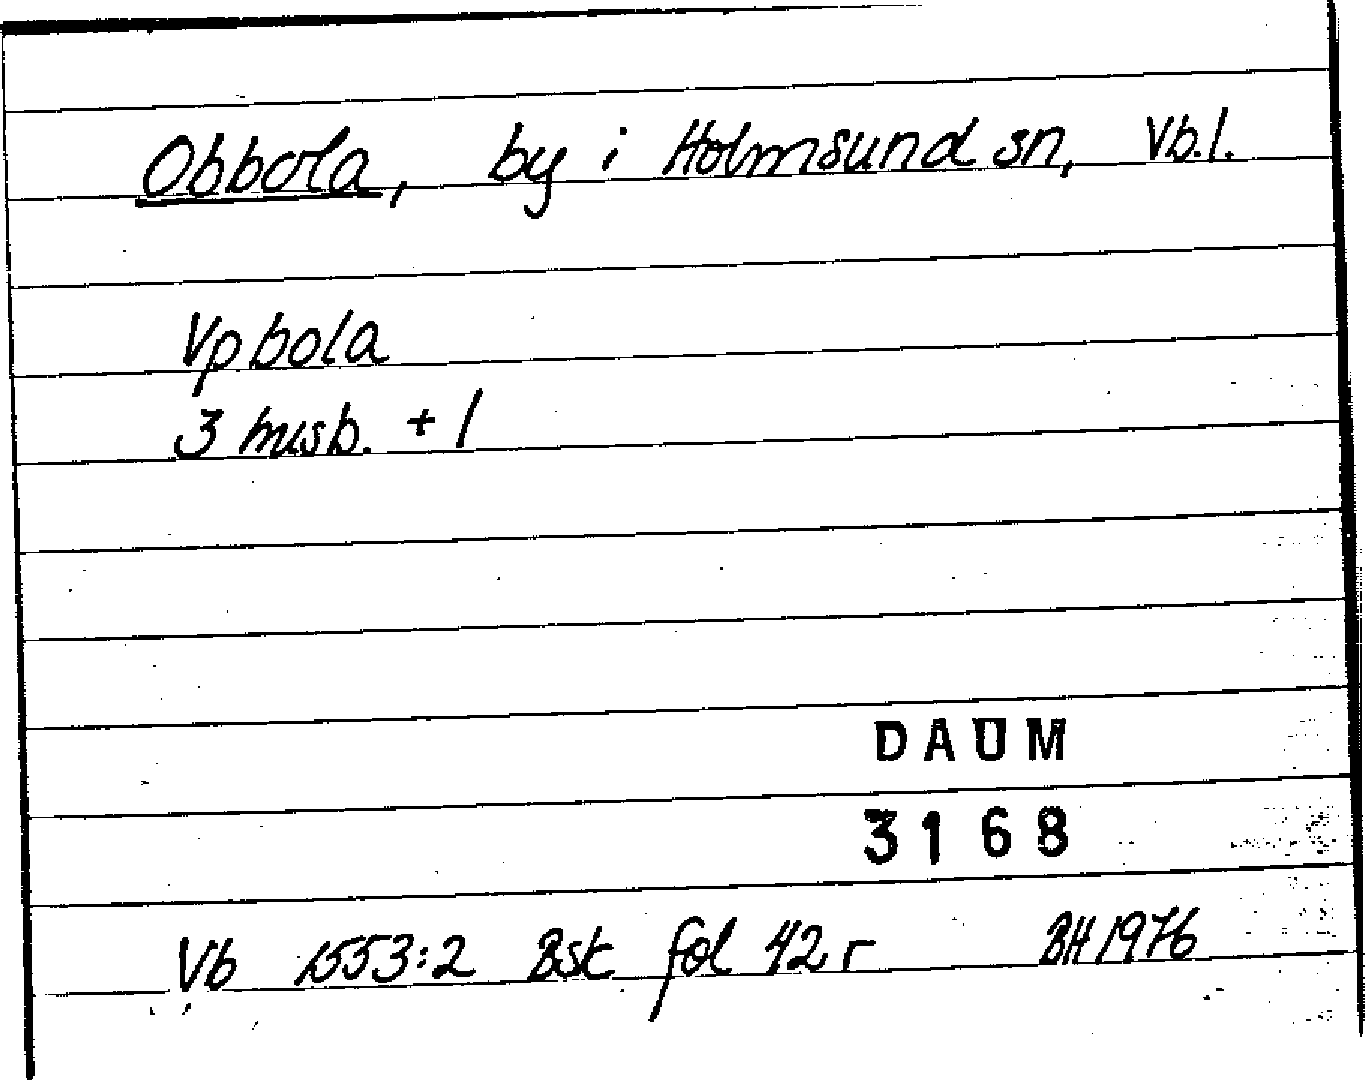 Obbola, by i Holmsund sn, Vb.l.
Vpbola
3 husb. + 1
DAUM
3168
Vb 1553:2 Bsk fol 42 r BH 1976